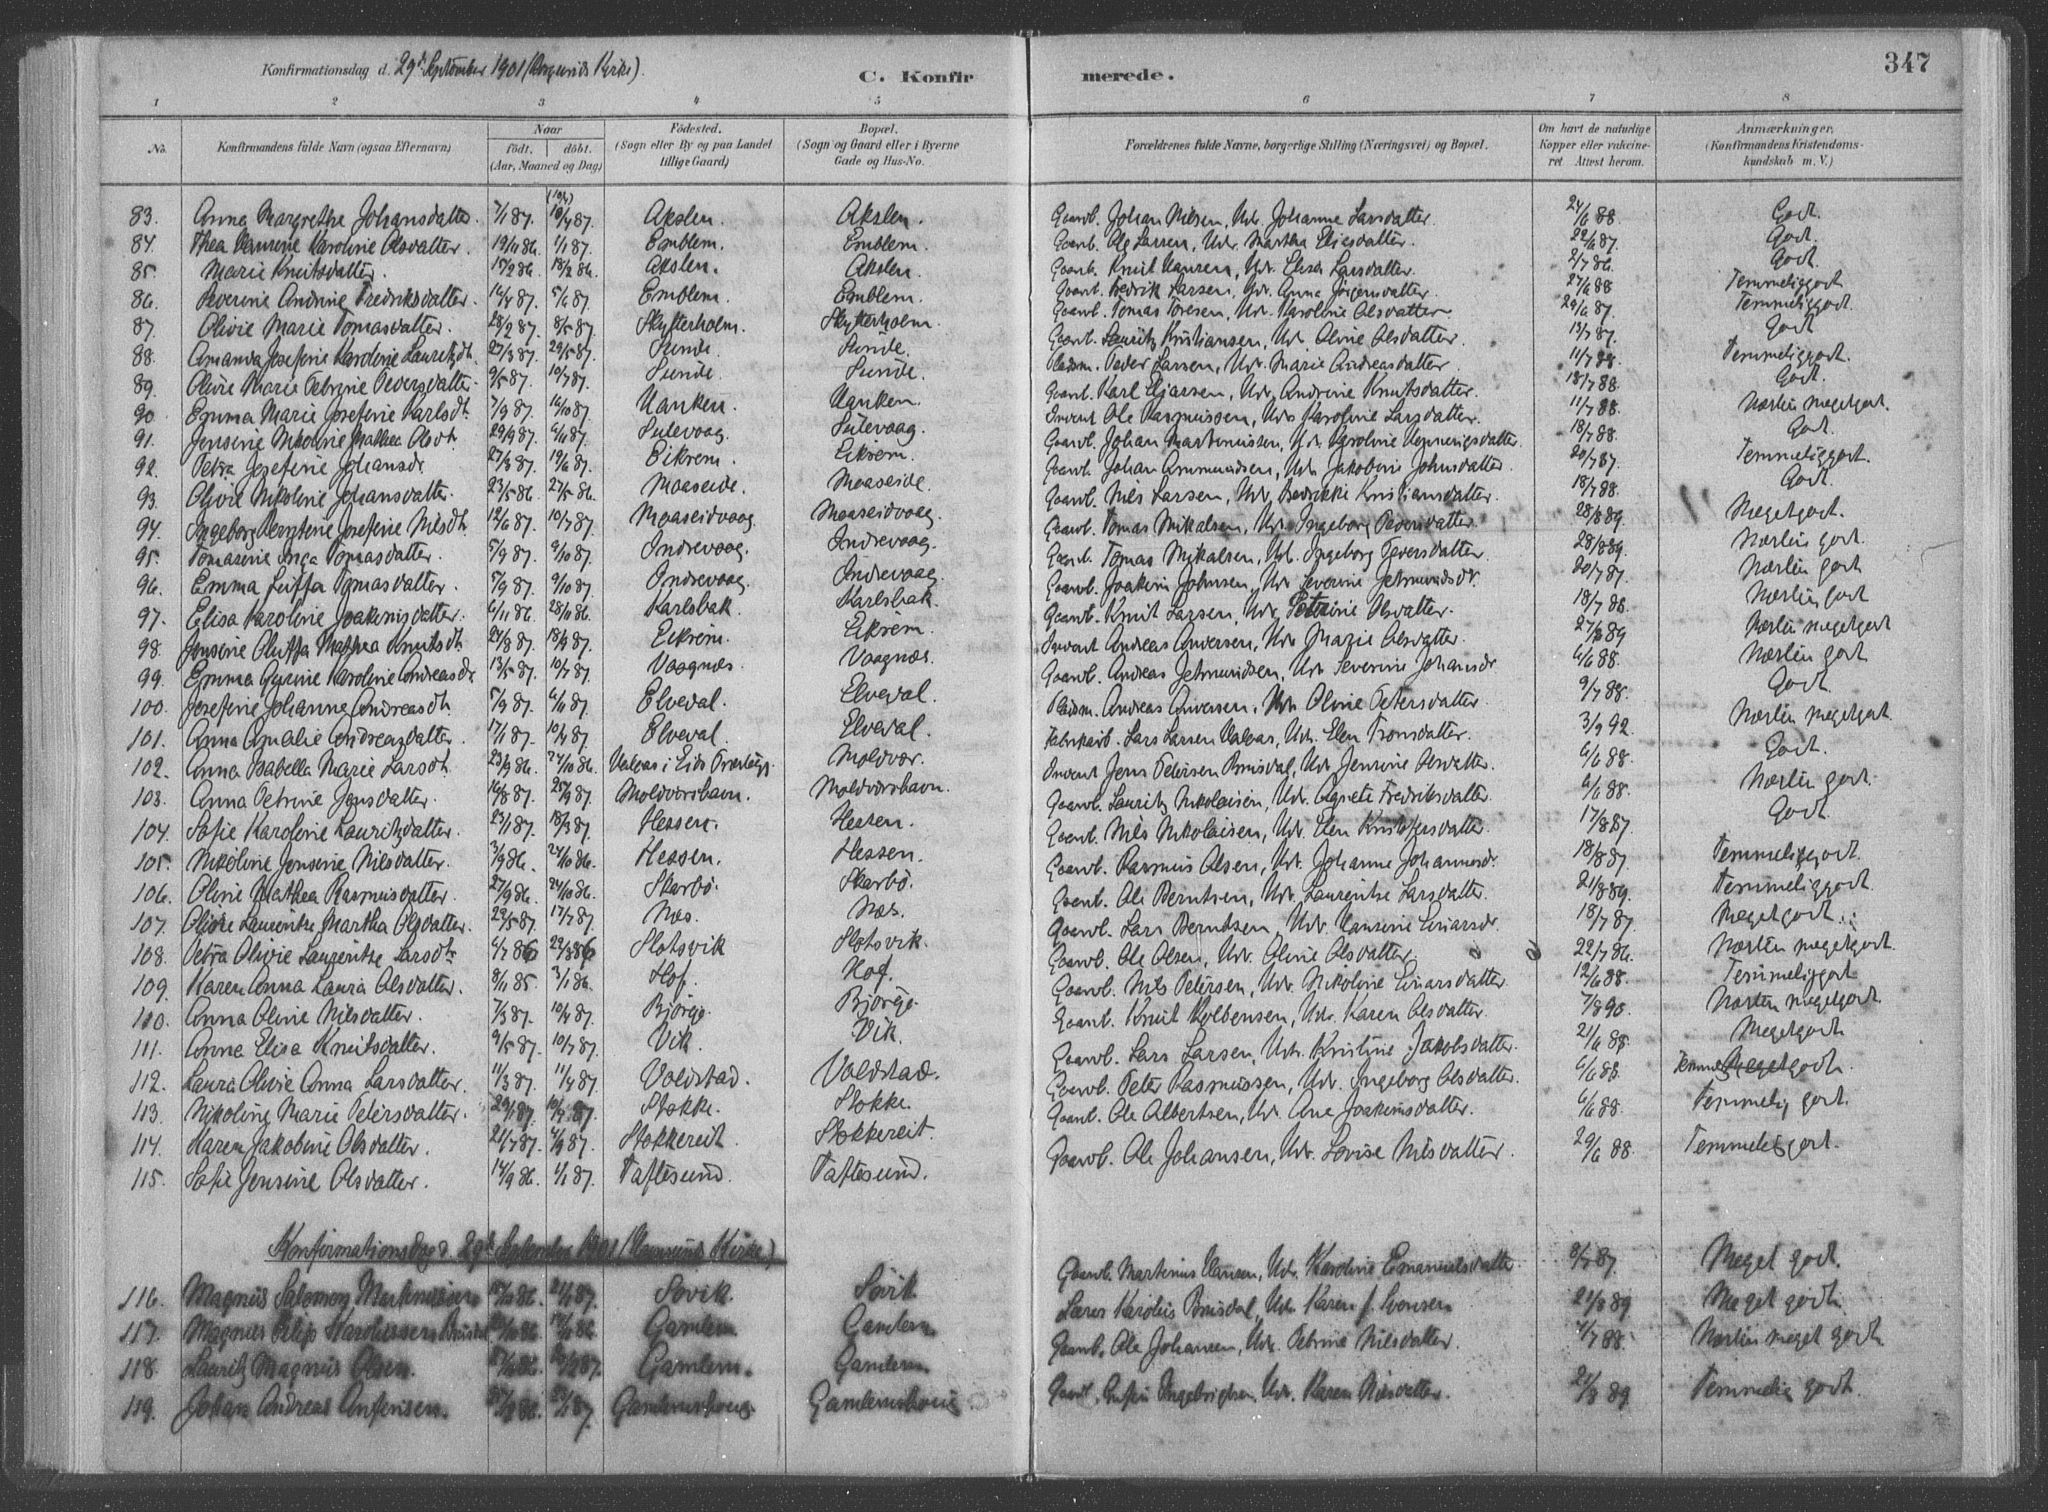 347
Konfirmationsdag d. 29de September 1901 (Borgunds Kirke).
C. Konfirmerede.
1 2 3 4 5 6 7 8
No. Konfirmandens fulde Navn (ogsaa Efternavn) Naar født. døbt. (Aar, Maaned og Dag) Fødested. (Sogn eller By og paa Landet tillige Gaard) Bopæl. (Sogn og Gaard eller i Byerne Gade og Hus-No. Forældrenes fulde Navne, borgerlige Stilling (Næringsvei) og Bopæl. Om havt de naturlige Kopper eller vakcineret Attest herom. Anmærkninger. (Konfirmandens Kristendomskundskab m. V.)
83. Anna Margrethe Johansdatter. 7/1 87. 10/4 87. Akslen. Akslen. Gaarb. Johan Nilsen, Hdr. Johanne Larsdatter. 24/6 88 Godt.
84. Thea Hansine Karoline Olsdatter. 19/11 86. 1/1 87. Emblem. Emblem. Gaarb. Ole Larsen, Hdr. Martha Eliesdatter. 22/6 87. Godt.
85. Marie Knutsdatter. 15/2 86. 18/2 86. Akslen. Akslen. Gaarb. Knut Hansen, Hdr. Elisa Larsdatter. 2/7 86. Godt.
86. Severine Andrine Fredriksdatter. 16/4 87. 5/6 87. Emblem. Emblem. Gaarb. Fredrik Larsen, Hdr. Anna Jørgensdatter. 24/6 88 Temmeliggodt
87. Olivie Marie Tomasdatter. 28/2 87. 8/5 87. Skytterholm. Skytterholm. Gaarb. Tomas Toresen, Hdr. Karoline Olsdatter 29/6 87. Temmeliggodt.
88. Amanda Josefine Karoline Lauritzdt. 27/3 87. 29/5 87. Sunde. Sunde. Gaarb. Lauritz Kristiansen, Hdr. Oline Olsdatter. 13/7 87. Godt
89. Olivie Marie Petrine Pedersdatter. 9/5 87. 10/7 87. Sunde. Sunde. Pladsm. Peder Larsen, Hdr. Marie Andreasdatter. 11/7 88. Temmeliggodt.
90. Emma Marie Josefine Karlsdt. 7/9 87. 16/10 87. Hanken. Hanken. Gaarb. Karl Eliassen, Hdr. Andrine Knutsdatter. 18/7 88. Godt.
91. Jensine Nikoline Mathea Olsdt. 29/9 87. 6/11 87. Sulevaag. Sulevaag. Inderst Ole Rasmussen, Hdr. Karoline Larsdatter. 11/7 88. Næsten megetgodt.
92. Petra Josefine Johansdr. 27/3 87. 19/6 87. Eikrem. Eikrem. Gaarb. Johan Martinussen, Hdr. Karoline Henningsdatter. 18/7 88. Godt.
93. Olivie Nikoline Johansdatter. 23/5 86. 27/5 86. Maaseide. Maaseide. Gaarb. Johan Ammundsen, Hdr. Jakobine Johnsdatter. 20/7 87. Temmeliggodt.
94. Ingeborg Berntine Josefine Nilsdt. 12/6 87. 10/7 87. Maaseidvaag. Maaseidvaag. Gaarb. Nils Larsen, Hdr. Fredrikke Kristiansdatter. 18/7 88. Godt.
95. Tomasine Inga Tomasdatter. 5/9 87. 9/10 87. Indrevaag. Indrevaag. Gaarb. Tomas Mikalsen, Hdr. Ingeborg Pedersdatter. 28/8 89. Megetgodt.
96. Emma Luffa Tomasdatter. 5/9 87. 9/10 87. Indrevaag. Indrevaag. Gaarb. Tomas Mikalsen, Hdr. Ingeborg Pedersdatter. 28/8 89. Næsten godt.
97. Elisa Karoline Joakimsdatter. 6/11 86. 28/11 86. Karlsbak. Karlsbak. Gaarb. Joakim Johnsen, Hdr. Severine Jetmundsdr. 20/7 87. Næsten godt
98. Jensine Oluffa Mathea Knutsdt. 24/8 87. 18/9 87. Eikrem. Eikrem. Gaarb. Knut Larsen, Hdr. Petrine Olsdatter. 18/7 88. Næsten godt
99. Emma Gurine Karoline Andreasdr. 13/5 87. 10/7 87. Vaagnæs. Vaagnæs. Inderst Andreas Andersen, Hdr. Marie Olsdatter. 27/8 89 Næsten megetgodt
100. Josefine Johanne Andreasdt. 5/9 87. 6/11 87. Elveval. Elveval. Gaarb. Andreas Jetmundsen, Hdr. Severine Johansdr. 6/6 88. Næsten godt
101. Anna Amalie Andreasdatter. 17/1 87. 10/4 87. Elveval. Elveval. Pladsm. Andreas Andersen, Hdr. Oline Petersdatter. 9/7 88. Godt.
102. Anna Isabella Marie Larsdt. 23/9 86. 24/10 86. Valvas i Eids Præstegj. Moldvær. Fabrikarb. Lars Larsen Valvas, Hdr. Elen Tronsdatter. 3/9 92. Næsten megetgodt.
103. Anna Petrine Jensdatter. 16/8 87. 25/9 87. Moldværshavn. Moldværshavn. Inderst Jens Petersen Brusdal, Hdr. Jensine Olsdatter. 6/6 88. Godt.
104. Sofie Karoline Lauritzdatter. 23/1 87. 18/3 87. Hessen. Hessen. Gaarb. Lauritz Nikolaisen, Hdr. Agnete Fredriksdatter. 6/6 88. Næsten godt.
105. Nikoline Jensine Nilsdatter. 3/9 86. 24/10 86. Hessen. Hessen. Gaarb. Nils Nikolaisen, Hdr. Elen Kristofersdatter. 17/8 87 Godt.
106. Oline Mathea Rasmusdatter. 27/9 86. 24/10 86. Skarbø. Skarbø. Gaarb. Rasmus Olsen, Hdr. Johanne Johannesdr. 18/8 87. Temmeliggodt.
107. Oline Laurentse Martha Olsdatter. 29/5 87. 17/7 87. Næs. Næs. Gaarb. Ole Berntsen, Hdr. Laurentse Larsdatter. 21/8 89. Temmeliggodt.
108. Petra Olivie Laurentse Larsdt. 6/7 86 22/8 86 Slotsvik Slotsvik. Gaarb. Lars Berntsen, Hdr. Hansine Einarsdr. 18/7 87. Megetgodt.
109. Karen Anna Laura Olsdatter. 8/11 85. 3/1 86. Hof. Hof. Gaarb. Ole Olsen, Hdr. Oline Olsdatter. 22/7 86. Næsten megetgodt.
110. Anna Oline Nilsdatter. 7/3 87. 10/4 87. Bjørge. Bjørge. Gaarb. Nils Petersen, Hdr. Nikoline Einarsdatter. 12/6 88. Temmeliggodt.
111. Anna Elisa Knutsdatter. 9/5 87. 10/7 87. Vik. Vik. Gaarb. Knut Kolbensen, Hdr. Karen Olsdatter. 7/8 90. Næsten megetgodt.
112. Laura Olivie Anna Larsdatter. 11/3 87. 11/4 87. Voldstad. Voldstad. Gaarb. Lars Larsen, Hdr. Kristine Jakobsdatter. 21/6 88. Megetgodt.
113. Nikoline Marie Petersdatter. 29/1 87. 10/4 87. Stokke. Stokke. Gaarb. Peter Rasmussen, Hdr. Ingeborg Olsdatter. 6/6 88. Temmeliggodt.
114. Karen Jakobine Olsdatter. 21/7 87. 4/9 87. Stokkereit. Stokkereit. Gaarb. Ole Albertsen, Hdr. Ane Joakimsdatter. 6/6 88. Temmelig godt.
115. Sofie Jensine Olsdatter. 14/9 86. 1/1 87. Taftesund. Taftesund. Gaarb. Ole Johansen, Hdr. Lovise Nilsdatter. 29/6 88. Temmeligodt.
Konfirmationsdag d. 29de September 1901 (Hamsunds Kirke)
116. Magnus Salomon Martinussen 86. 87. Søvik. Søvik Gaarb. Martinus Hansen, Hdr. Karoline Emanuelsdatter. 8/7 87. Meget godt.
117. Magnus Filip Karoliussen Brusdal 86. 86. Gamlem Gamlem Lærer Karolius Brusdal, Hdr. Karen J. Svensen 21/8 89 Meget godt.
118. Lauritz Magnus Olsen. 86. 87. Gamlem. Gamlem Gaarb. Ole Johansen, Hdr. Petrine Nilsdatter. 4/7 88. Næsten meget godt
119. Johan Andreas Antonsen. 86. 87. Gamlemshoug Gamlemshoug Hdr. Karen Nilsdatter. 21/8 89. Temmelig godt.